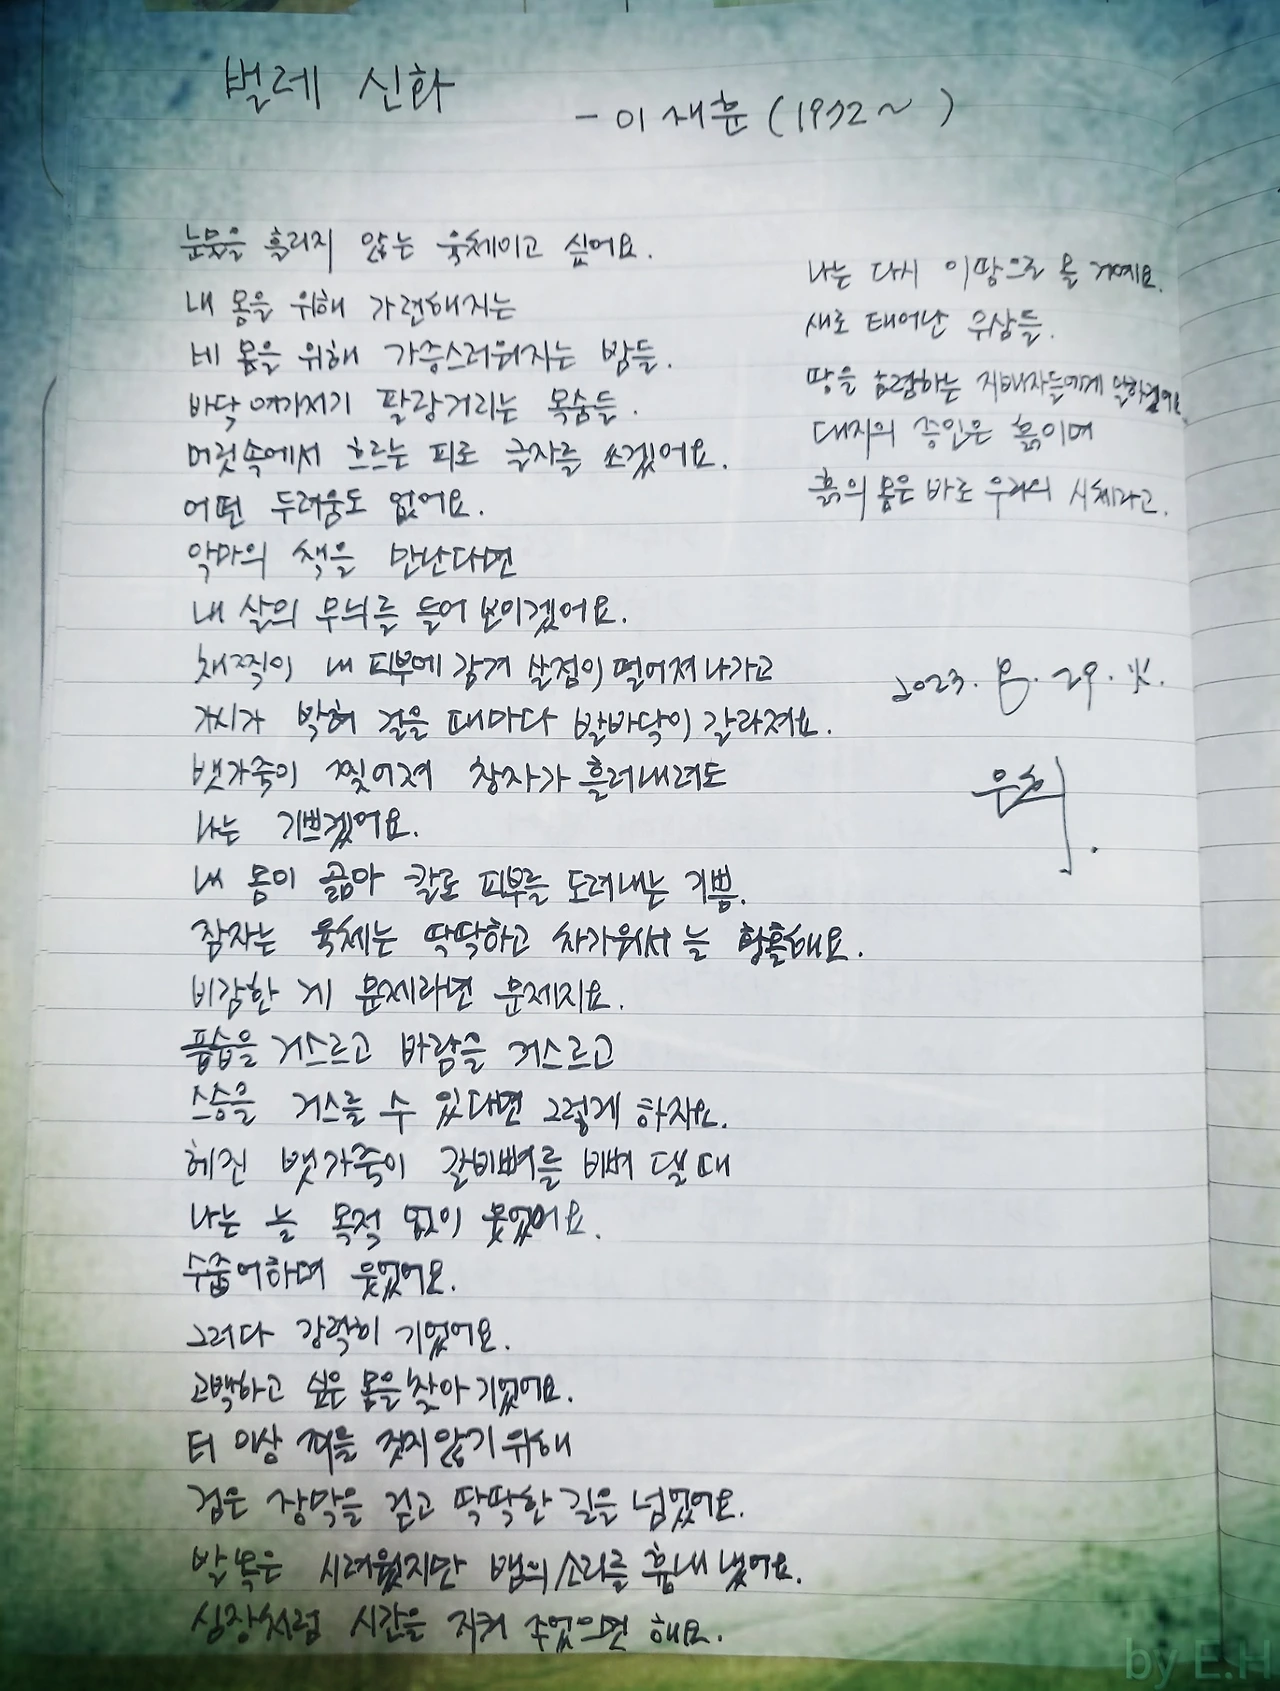 벌레 신화
- 이재훈 (1972~ )
눈물을 흘리지 않는 육체이고 싶어요.
내 몸을 위해 가련해지는
네 몸을 위해 가증스러워지는 밤들.
바닥 여기저기 팔랑거리는 목숨들.
머릿속에서 흐르는 피로 글자를 쓰겠어요.
어떤 두려움도 없어요.
악마의 책을 만난다면
내 살의 무늬를 들어 보이겠어요.
채찍이 내 피부에 감겨 살점이 떨어져 나가고
가시가 박혀 걸을 때마다 발바닥이 갈라져요.
뱃가죽이 찢어져 창자가 흘러내려도
나는 기쁘겠어요.
내 몸이 곪아 칼로 피부를 도려내는 기쁨.
잠자는 육체는 딱딱하고 차가워서 늘 황홀해요.
비감한 게 문제라면 문제지요.
풍습을 거스르고 바람을 거스르고
스승을 거스를 수 있다면 그렇게 하지요.
헤진 뱃가죽이 갈비뼈를 비벼 댈 때
나는 늘 목적 없이 웃었어요.
수줍어하며 웃었어요.
그러다 강력히 기었어요.
고백하고 싶은 몸을 찾아 기었어요.
더 이상 젖지 않기 위해
검은 장막을 걷고 딱딱한 길을 넘었어요.
발목은 시려웠지만 뱀의 소리를 흉내 냈어요.
심장처럼 시간을 지켜 주었으면 해요.
나는 다시 이 땅으로 올 거예요.
새로 태어난 우상들.
땅을 점령하는 지배자들에게 말하겠어요
대지의 증인은 흙이며
흙의 몸은 바로 우리의 시체라고.
2023. 8. 29. 火.
은희.
by E.H